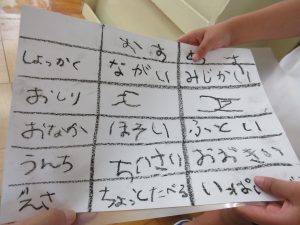 おす めす
しょっかく ながい みじかい
おしり
おなか ほそい ふっとい
うんち ちいさい おおきい
えさ ちょっとたべる いっぱい